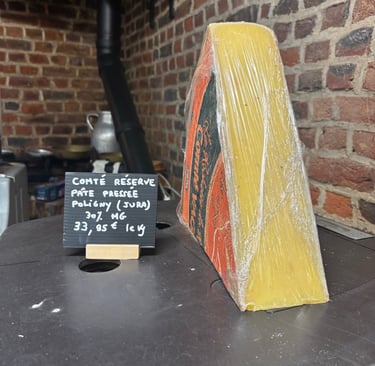 COMTÉ RÉSERVE
PÂTE PRESSÉE
POLIGNY (JURA)
30% MG
33,85€ le kg